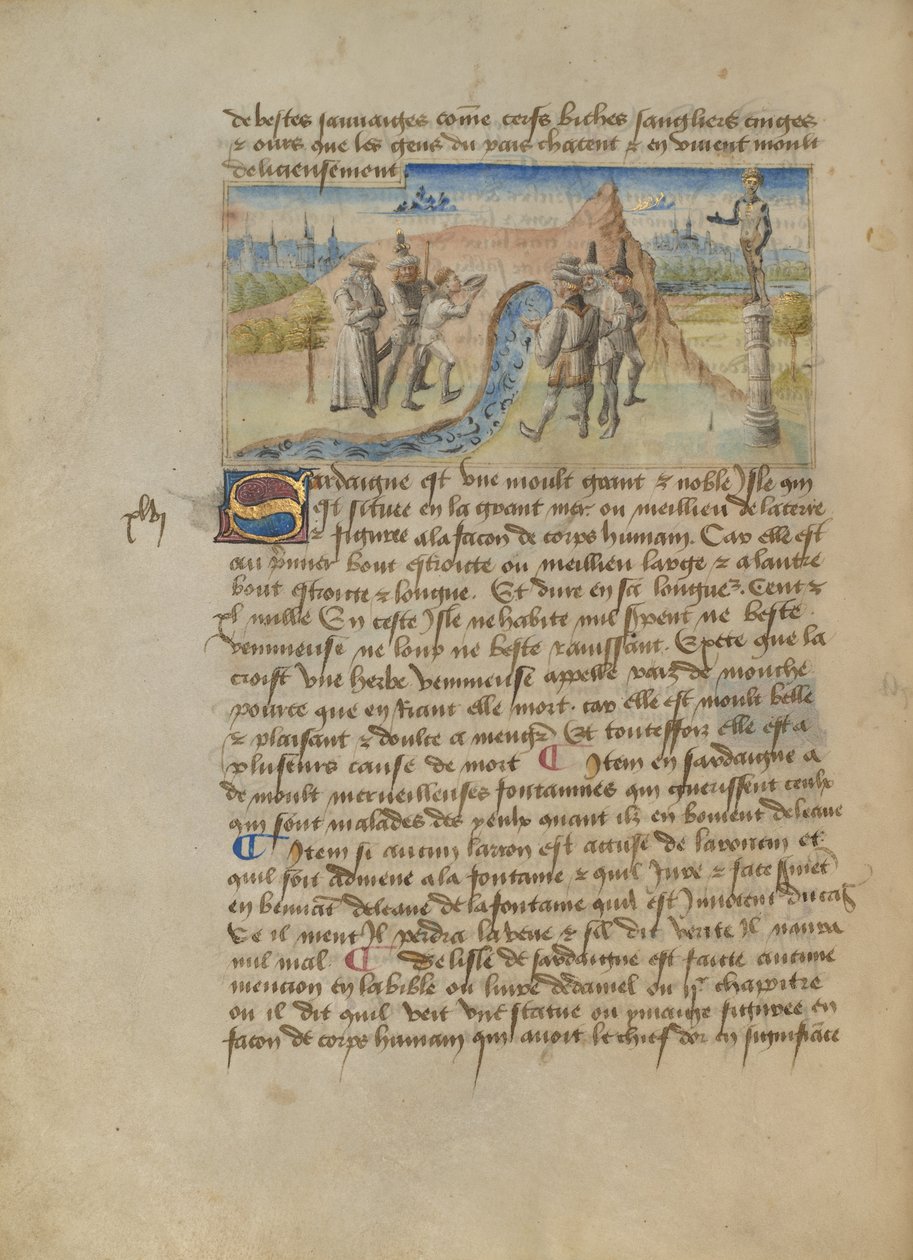 de bestes sauuaiges com̄e cerfs biches sangliers cinges
& ours que les gens du pais chacent & en viuent moult
delicieusement
Sardaigne est vne moult grant & noble Isle qui
est situee en la grant mer ou meillieu de la terre
& figuree a la facon de corps humain. Car elle est
au p̄mier bout estroicte ou meillieu large & a lautre
bout estroicte & longue. Et dure en sa longue². Cent &
xl mille En ceste Isle ne habite nul s̄pent ne beste
xlvj
venimeuse ne loup ne beste rauissant. Excte que la
croist vne herbe venimeuse appelle de mouche
pource que en riant elle mort. car elle est moult belle
& plaisant & doulce a meng² Et touteffoiz elle est a
plusieurs cause de mort ¶ Item en sardaigne a
de moult merueilleuses fontainnes qui guerissent ceulx
qui sont malades des yeulx quant ilz en boiuent de leaue
¶ Item si aucun larron est accuse de larrecin et
quil soit admene a la fontaine & quil Jure & face
en beuuāt de leaue de la fontaine quil est Innocent du cas
Se il ment Il perdra la veue & sil dit verite Il naura
nul mal. ¶ De lisle de sardaigne est faicte aucune
mencion en la bible ou liure de daniel ou ijᵉ chapitre
ou il dit quil veit vne statue ou ymaige figuree en
facon de corps humain qui auoit le chief dor en signifiāce